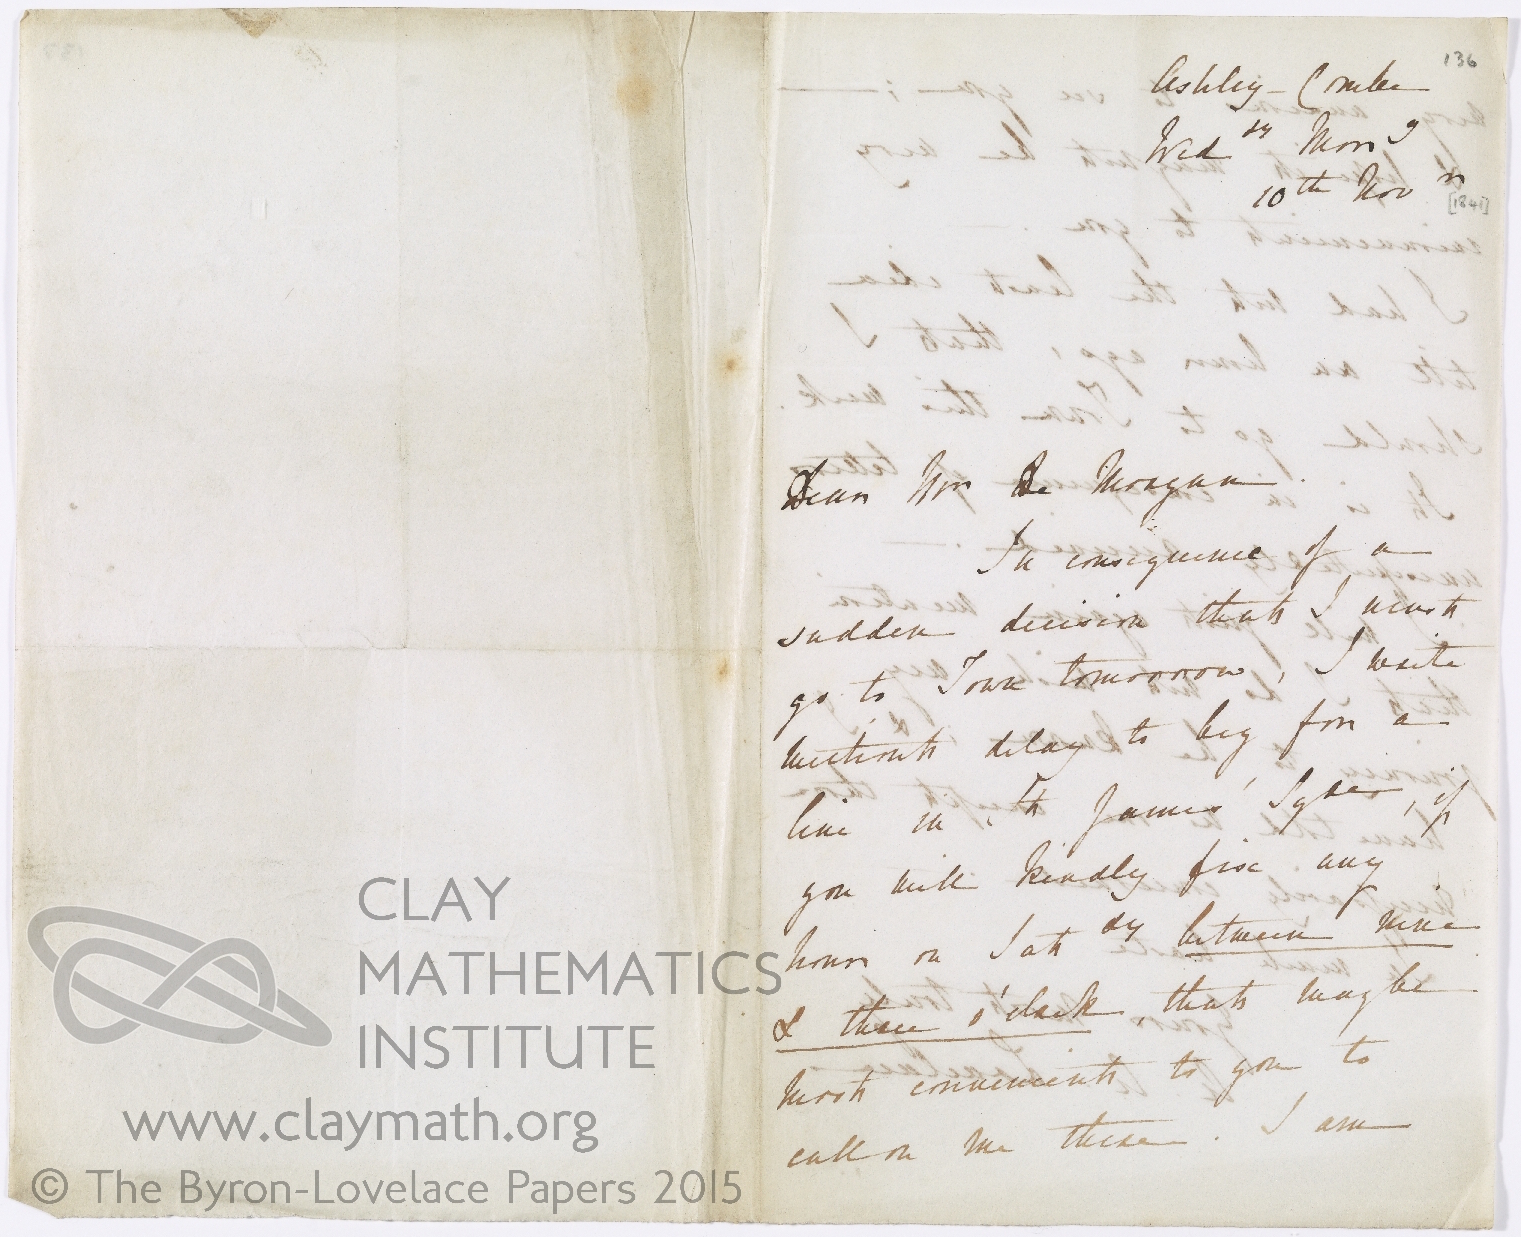 136
Ashley-Combe
Wed^dy Morn^g
10^th Nov^r
[1841]
Dear Mr De Morgan.
In consequence of a
sudden decision that I must
go to Town tomorrow, I write
without delay to beg for a
line in St James' Sq^re, if
you will kindly fix any
hour on Sat^dy between nine
& three o'clock that may be
most convenient to you to
call on me there. I am
CLAY
MATHEMATICS
INSTITUTE
www.claymath.org
© The Byron-Lovelace Papers 2015